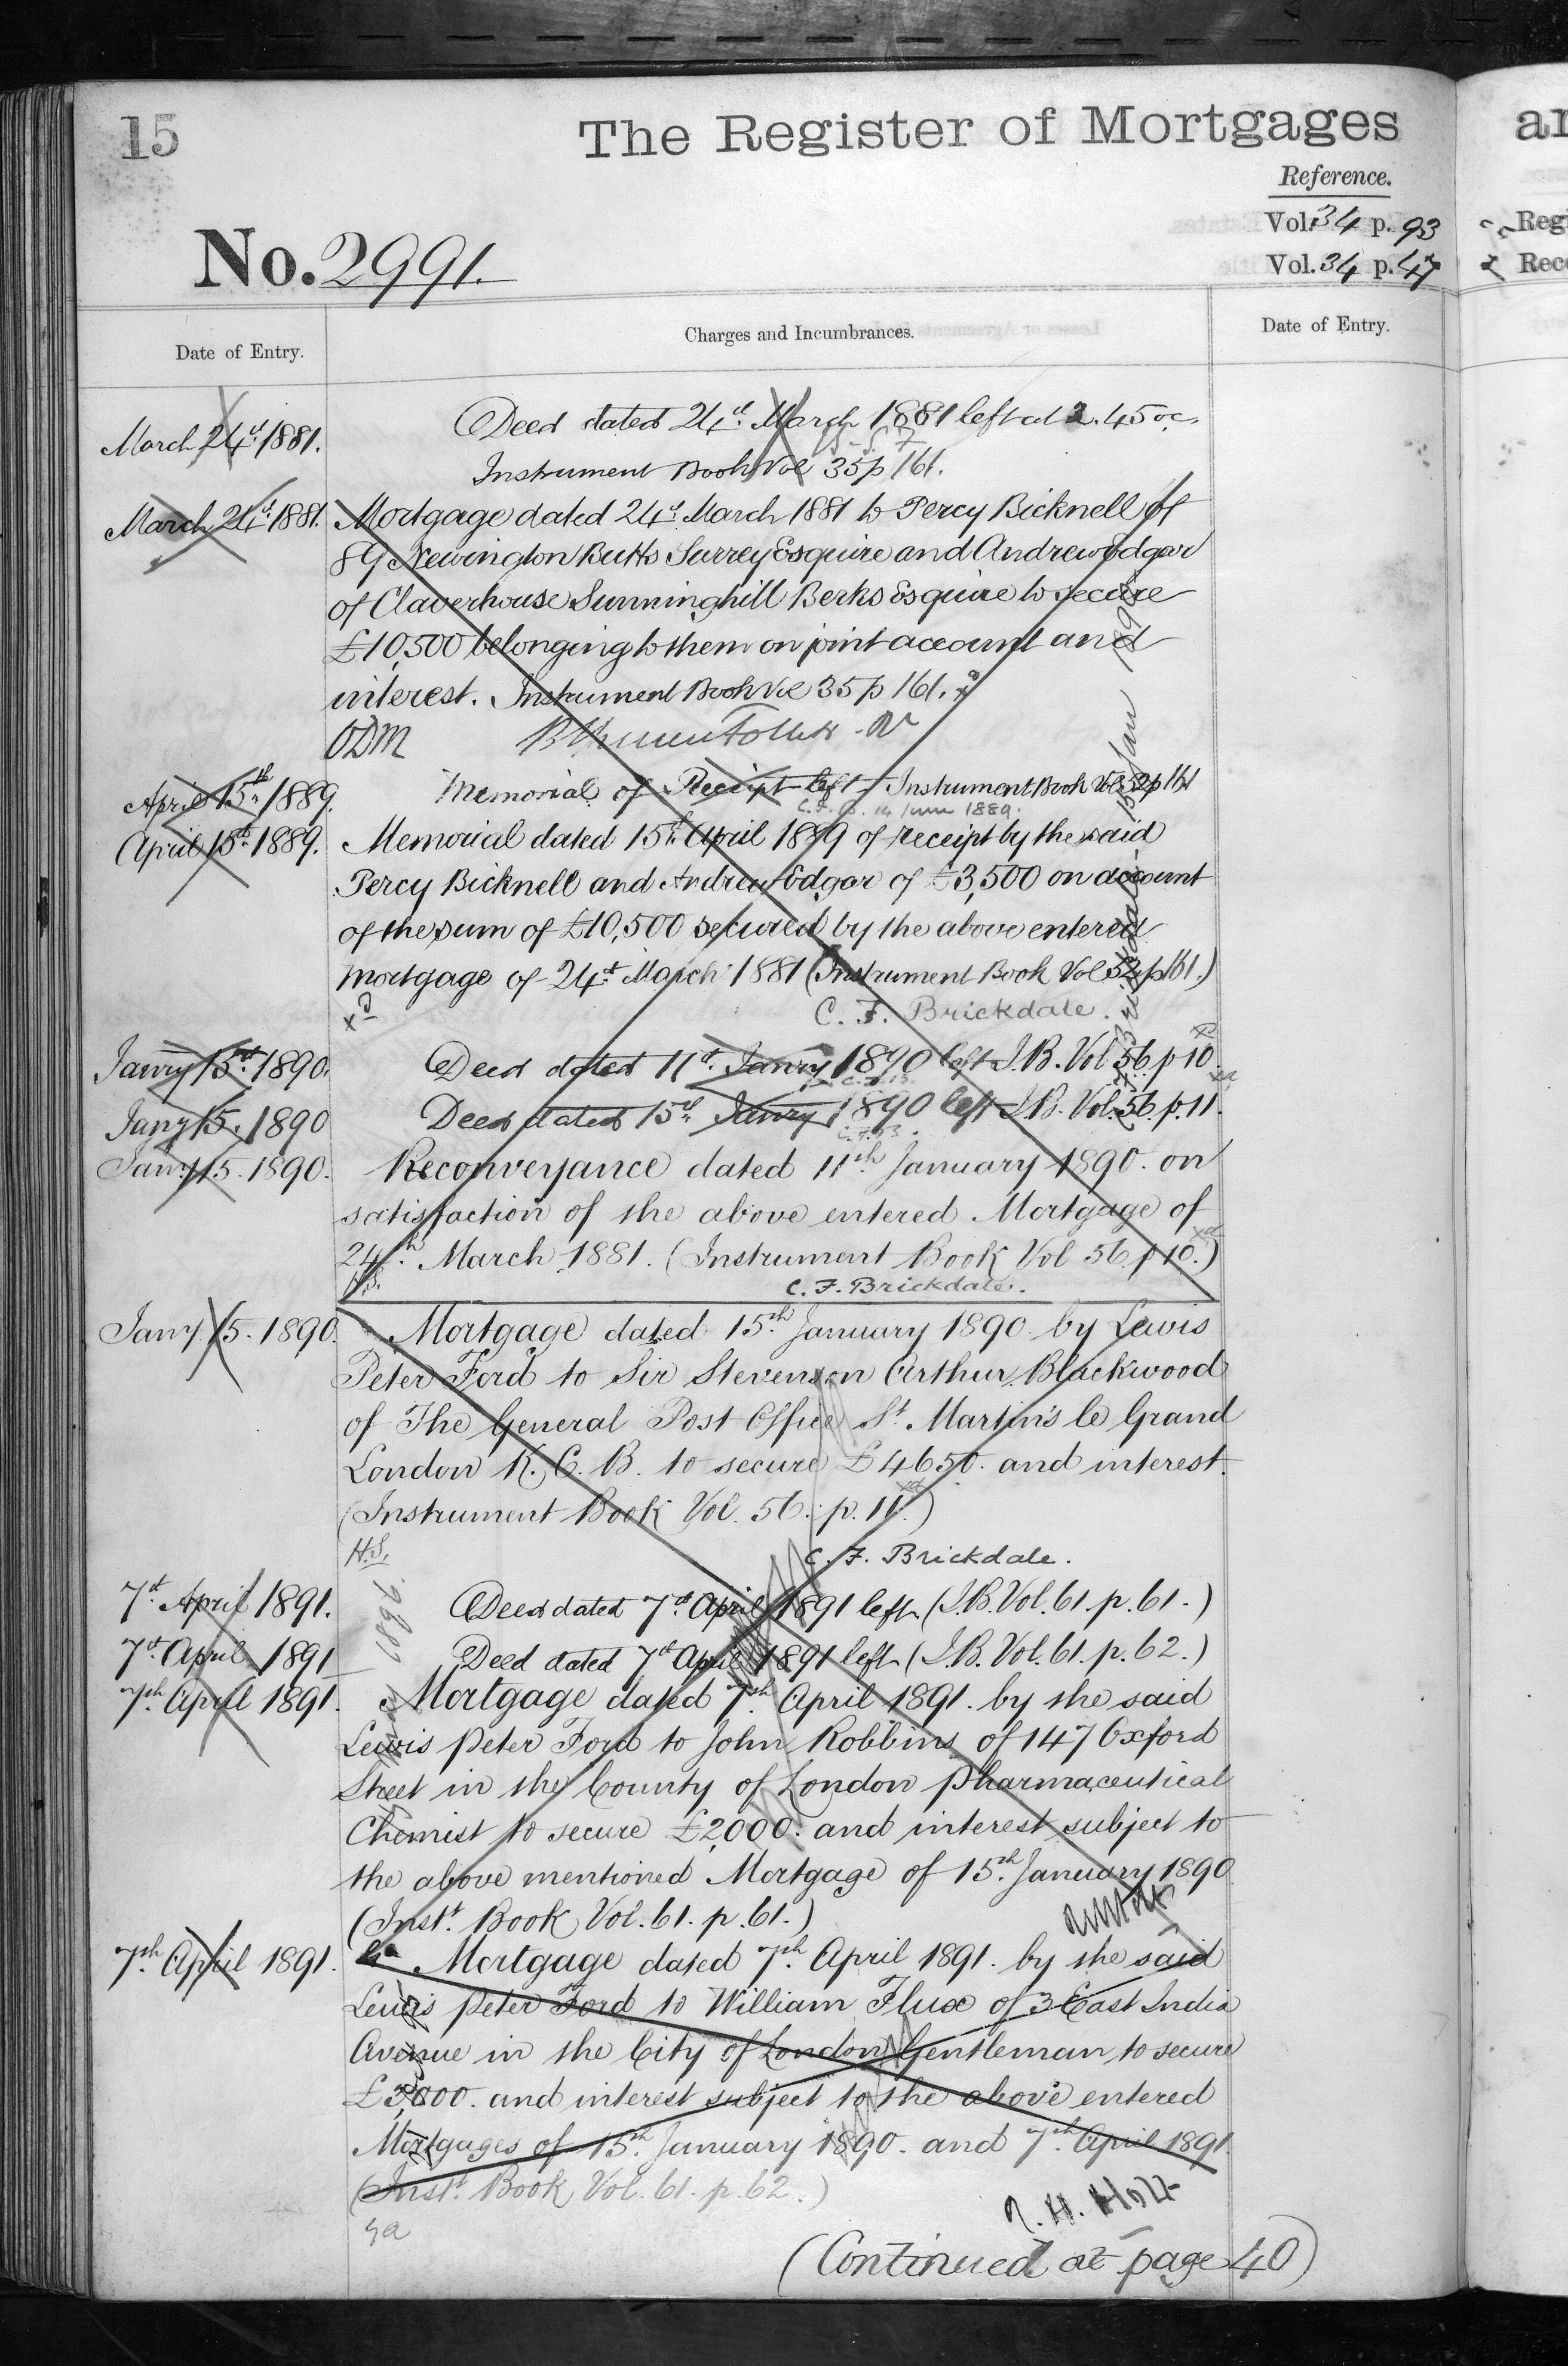 15
The Register of Mortgages
Reference.
Vol. 34 p. 93
Vol. 34 p. 47
No. 2991.
Date of Entry.
Charges and Incumbrances.
Date of Entry.
March 24th 1881. Deed dated 24th March 1881 left at 2.45 oc.
Instrument Book Vol 35 p 161.
March 24th 1881. Mortgage dated 24th March 1881 to Percy Bicknell of
89 Newington Butts Surrey Esquire and Andrew Edgar
of Claverhouse Sunninghill Berks Esquire to secure
£10,500 belonging to them on joint account and
interest. Instrument Book Vol 35 p 161.
ODM
April 15th 1889. Memorial of Receipt left Instrument Book Vol 52 p 161
C.F.B. 14 June 1889.
April 15th 1889. Memorial dated 15th April 1889 of receipt by the said
Percy Bicknell and Andrew Edgar of £3,500 on account
of the sum of £10,500 secured by the above entered
mortgage of 24th March 1881 (Instrument Book Vol 52 p 161.)
C. F. Brickdale.
Janry 15th 1890. Deed dated 11th Janry 1890 left I.B. Vol. 56. p 10
Jany 15. 1890 Deed dated 15th Janry 1890 left I.B. Vol. 56. p. 11.
C.F.B.
Jany 15. 1890. Reconveyance dated 11th January 1890. on
satisfaction of the above entered Mortgage of
24th March 1881. (Instrument Book Vol 56. p 10.)
H.S. C. F. Brickdale.
Jany. 15. 1890. Mortgage dated 15th January 1890 by Lewis
Peter Ford to Sir Stevenson Arthur Blackwood
of The General Post Office St. Martin's le Grand
London K. C. B. to secure £4650. and interest.
(Instrument Book Vol. 56. p. 11.)
H.S. C. F. Brickdale.
7th April 1891. Deed dated 7th April 1891 left (I.B. Vol. 61. p. 61.)
7th April 1891 Deed dated 7th April 1891 left (I.B. Vol. 61. p. 62.)
7th April 1891. Mortgage dated 7th April 1891. by the said
Lewis Peter Ford to John Robbins of 147 Oxford
Street in the County of London Pharmaceutical
Chemist to secure £2,000. and interest subject to
the above mentioned Mortgage of 15th January 1890
(Inst. Book Vol. 61. p. 61.)
7th April 1891. Mortgage dated 7th April 1891. by the said
Lewis Peter Ford to William Flux of 3 East India
Avenue in the City of London Gentleman to secure
£3,000. and interest subject to the above entered
Mortgages of 15th January 1890. and 7th April 1891.
(Inst. Book Vol. 61. p. 62.)
R. H. Holt
(Continued at page 40)